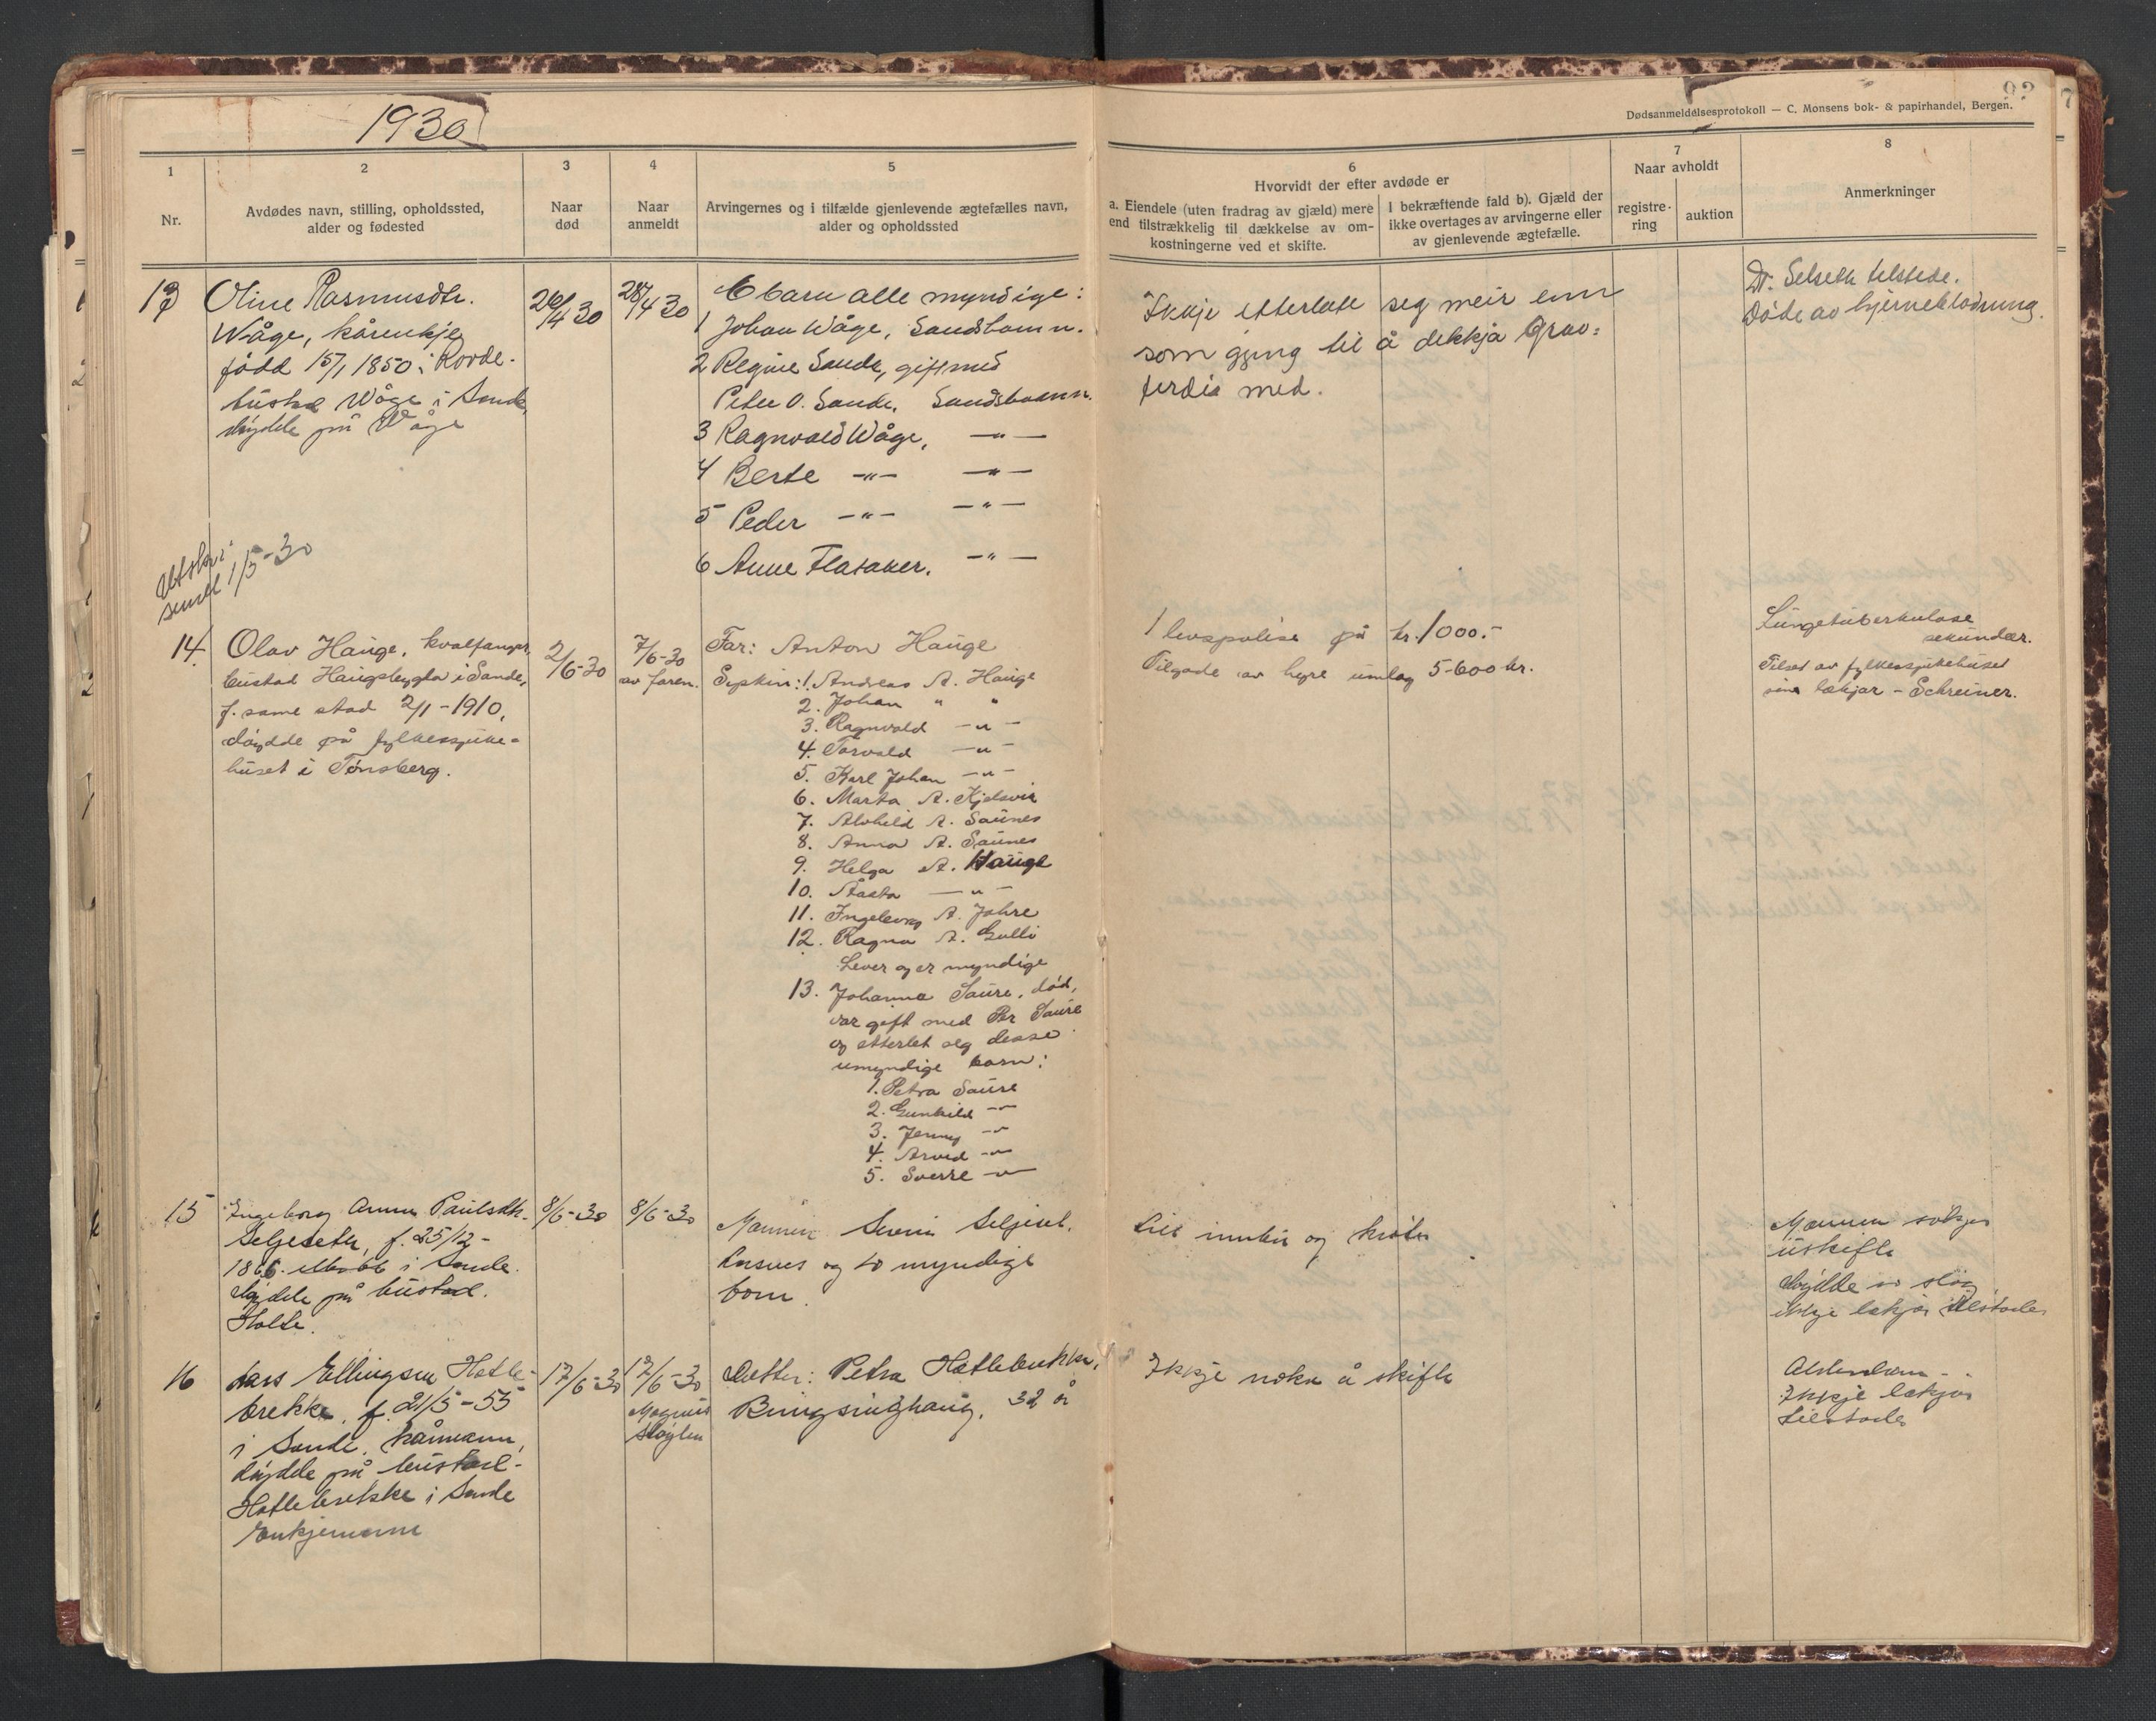 1930
92
Dødsanmeldelsesprotokoll — C. Monsens bok- & papirhandel, Bergen.
1
Nr.
2
Avdødes navn, stilling, opholdssted,
alder og fødested
3
Naar
død
4
Naar
anmeldt
5
Arvingernes og i tilfælde gjenlevende ægtefælles navn,
alder og opholdssted
6
Hvorvidt der efter avdøde er
a. Eiendele (uten fradrag av gjæld) mere
end tilstrækkelig til dækkelse av om-
kostningerne ved et skifte.
I bekræftende fald b). Gjæld der
ikke overtages av arvingerne eller
av gjenlevende ægtefælle.
7
Naar avholdt
registre-
ring
auktion
8
Anmerkninger
13
Oline Rasmusdtr.
Wåge, kårenkje
fødd 15/1 1850 i Rovde.
bustad Wåge i Sande,
døydde på Wåge
26/4 30
28/4 30
6 barn alle myndige:
1 Johan Wåge, Sandshamn.
2 Regine Sande, gift med
Peder O. Sande, Sandshamn.
3 Ragnvald Wåge, —"—
4 Berte —"— —"—
5 Peder —"— —"—
6 Anne Flasaker. —"—
Ikkje etterlate seg meir enn
som gjeng til å dekkja Grav=
ferdia med.
Dr. Selseth tilstede.
Døde av hjerneblødning.
sendt 1/5-30
14.
Olav Hauge, kvalfanger,
bustad Haugsbygda i Sande,
f. same stad 2/1-1910,
døydde på fylkessjuke-
huset i Tønsberg.
2/6-30
7/6-30
av faren.
Far: Anton Hauge
Syskin: 1. Andreas A. Hauge
2. Johan " "
3. Ragnvald —"—
4. Torvald —"—
5. Karl Johan —"—
6. Marta A. Kjelsvik
7. Alvhild A. Saunes
8. Anna A. Saunes
9. Helga A. Hauge
10. Aasta —"—
11. Ingeborg A. Jahre
12. Ragna A. Gulli
Lever og er myndige
13. Johanna Saure, død,
var gift med Per Saure
og etterlet seg desse
umyndige born:
1. Petra Saure
2. Gunhild —"—
3. Jenny —"—
4. Arvid —"—
5. Sverre —"—
1 livspolise på kr. 1000.-
Tilgode av hyre umlag 5-600 kr.
Lungetuberkulose
sekundær.
Tilset av fylkessjukehuset
sine lækjar - Schreiner.
15
Ingeborg Anna Paulsdtr.
Seljeseth, f. 25/12-
1866. i Sande.
døydde på bustad.
Holte.
8/6-30
8/6-30
Mannen Severin Seljeset.
og 10 myndige
born.
Litt innbu og krøter
Mannen søkjer
uskifte
Døydde av slag
ikkje lækjar tilstades
16
Lars Ellingsen Hatle-
brekke, f. 21/5-55
i Sande, kårmann,
døydde på bustad-
Hatlebrekke i Sande
Enkjemann
17/6-30
17/6-30
Magnus
Støylen
Dotter: Petra Hatlebrekke,
Ringsinghaug, 32 år
Ikkje noko å skifte
Alderdom -
Ikkje lækjar
tilstades